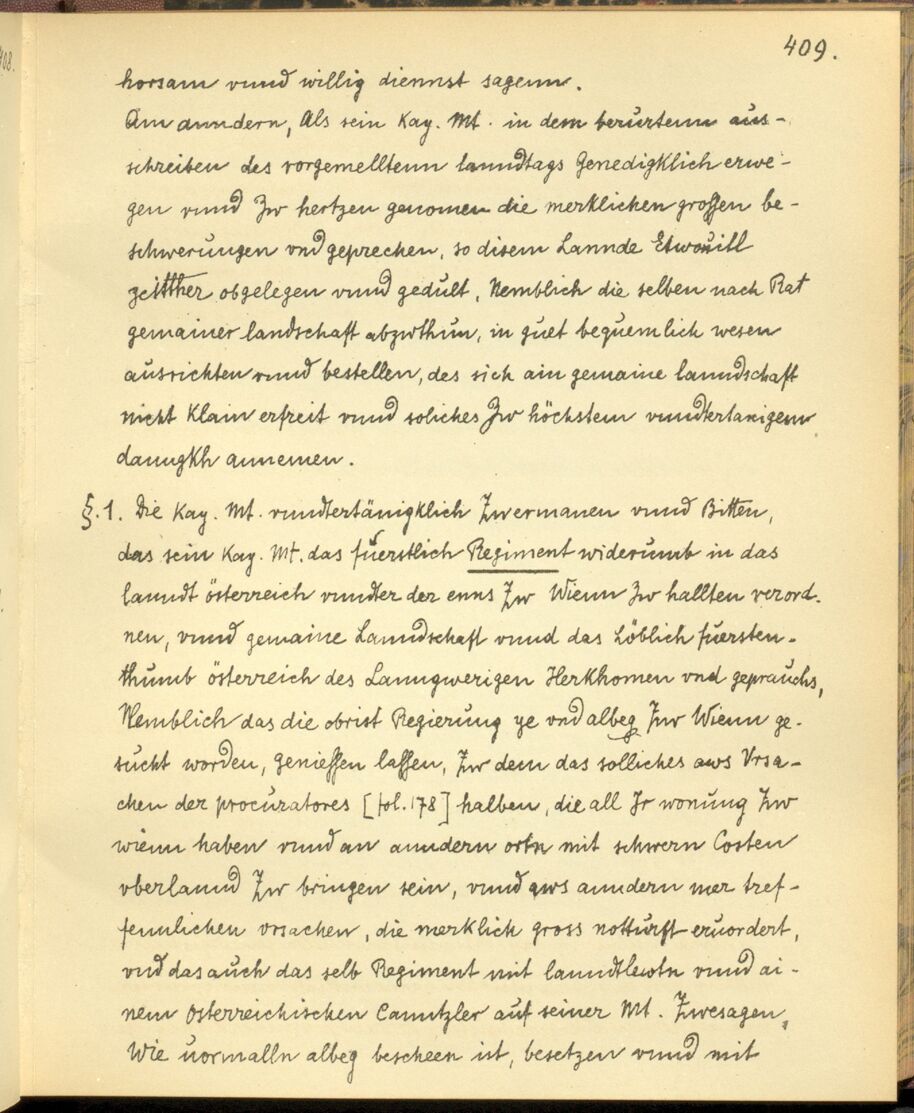 409.
horsam vnnd willig diennst sagenn.
Am anndern, Als sein Kay. Mt. in dem berurtenn aus-
schreiben des vorgemelltenn lanndtags Genedigklich erwe-
gen vnnd Zw hertzen genomen die merklichen grossen be-
schwerungen vnd geprechen, so disem Lannde Etwouill
zeitther obgelegen vnnd gedult, Nemblich die selben nach Rat
gemainer landschaft abzwthun, in guet bequemlich wesen
ausrichten vnnd bestellen, des sich ain gemaine lanndschaft
nicht Klain erfreit vnnd soliches Zw höchstem vnndtertanigenn
danngkh annemen.
§.1. Die Kay. Mt. vnndtertänigklich Zwermanen vnnd Bitten,
das sein Kay. Mt. das fuerstlich Regiment widerumb in das
lanndt österreich vnndter der enns Zw Wienn Zw hallten verord-
nen, vnnd gemaine Lanndschaft vnnd das Löblich fuersten-
thumb österreich des Lanngwerigen Herkhomen vnd geprauchs,
Nemblich das die obrist Regierung ye vnd albeg Zw Wienn ge-
sucht worden, geniessen lassen, Zw dem das solliches aws Vrsa-
chen der procuratores [fol. 178] halben, die all Jr wonung Zw
wienn haben vnnd an anndern ortn mit schwern Costen
vberlannd Zw bringen sein, vnnd aws anndern mer tref-
fennlichen vrsachen, die merklich gross notturft eruordert,
vnd das auch das selb Regiment mit lanndtlewtn vnnd ai-
nem Osterreichischen Canntzler auf seiner Mt. Zwesagen,
Wie uormalln albeg bescheen ist, besetzen vnnd mit